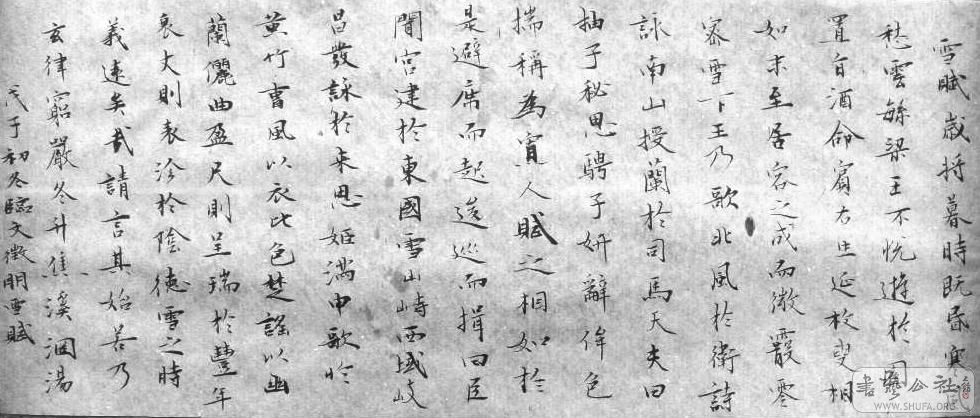 雪賦歲將暮時既昏寒
愁雲繇梁王不悅遊於
置旨酒命賓友召延枚叟相
如末至居客之成而微霰零
密雪下王乃歌北風於衛詩
詠南山授蘭於司馬大夫曰
抽子秘思騁子妍辭侔色
揣稱為寡人賦之相如於
是避席而起逡巡而揖曰臣
聞宮建於東國雪山峙西域岐
昌發詠於來思姬滿申歌於
黃竹曹風以衣比色楚謠以幽
蘭儷曲盈尺則呈瑞於豐年
袤丈則表沴於陰德雪之時
義遠矣哉請言其始若乃
玄律窮嚴冬升焦溪涸湯
戊子初冬臨文徵明雪賦
書藝公社
WWW.SHUFA.ORG